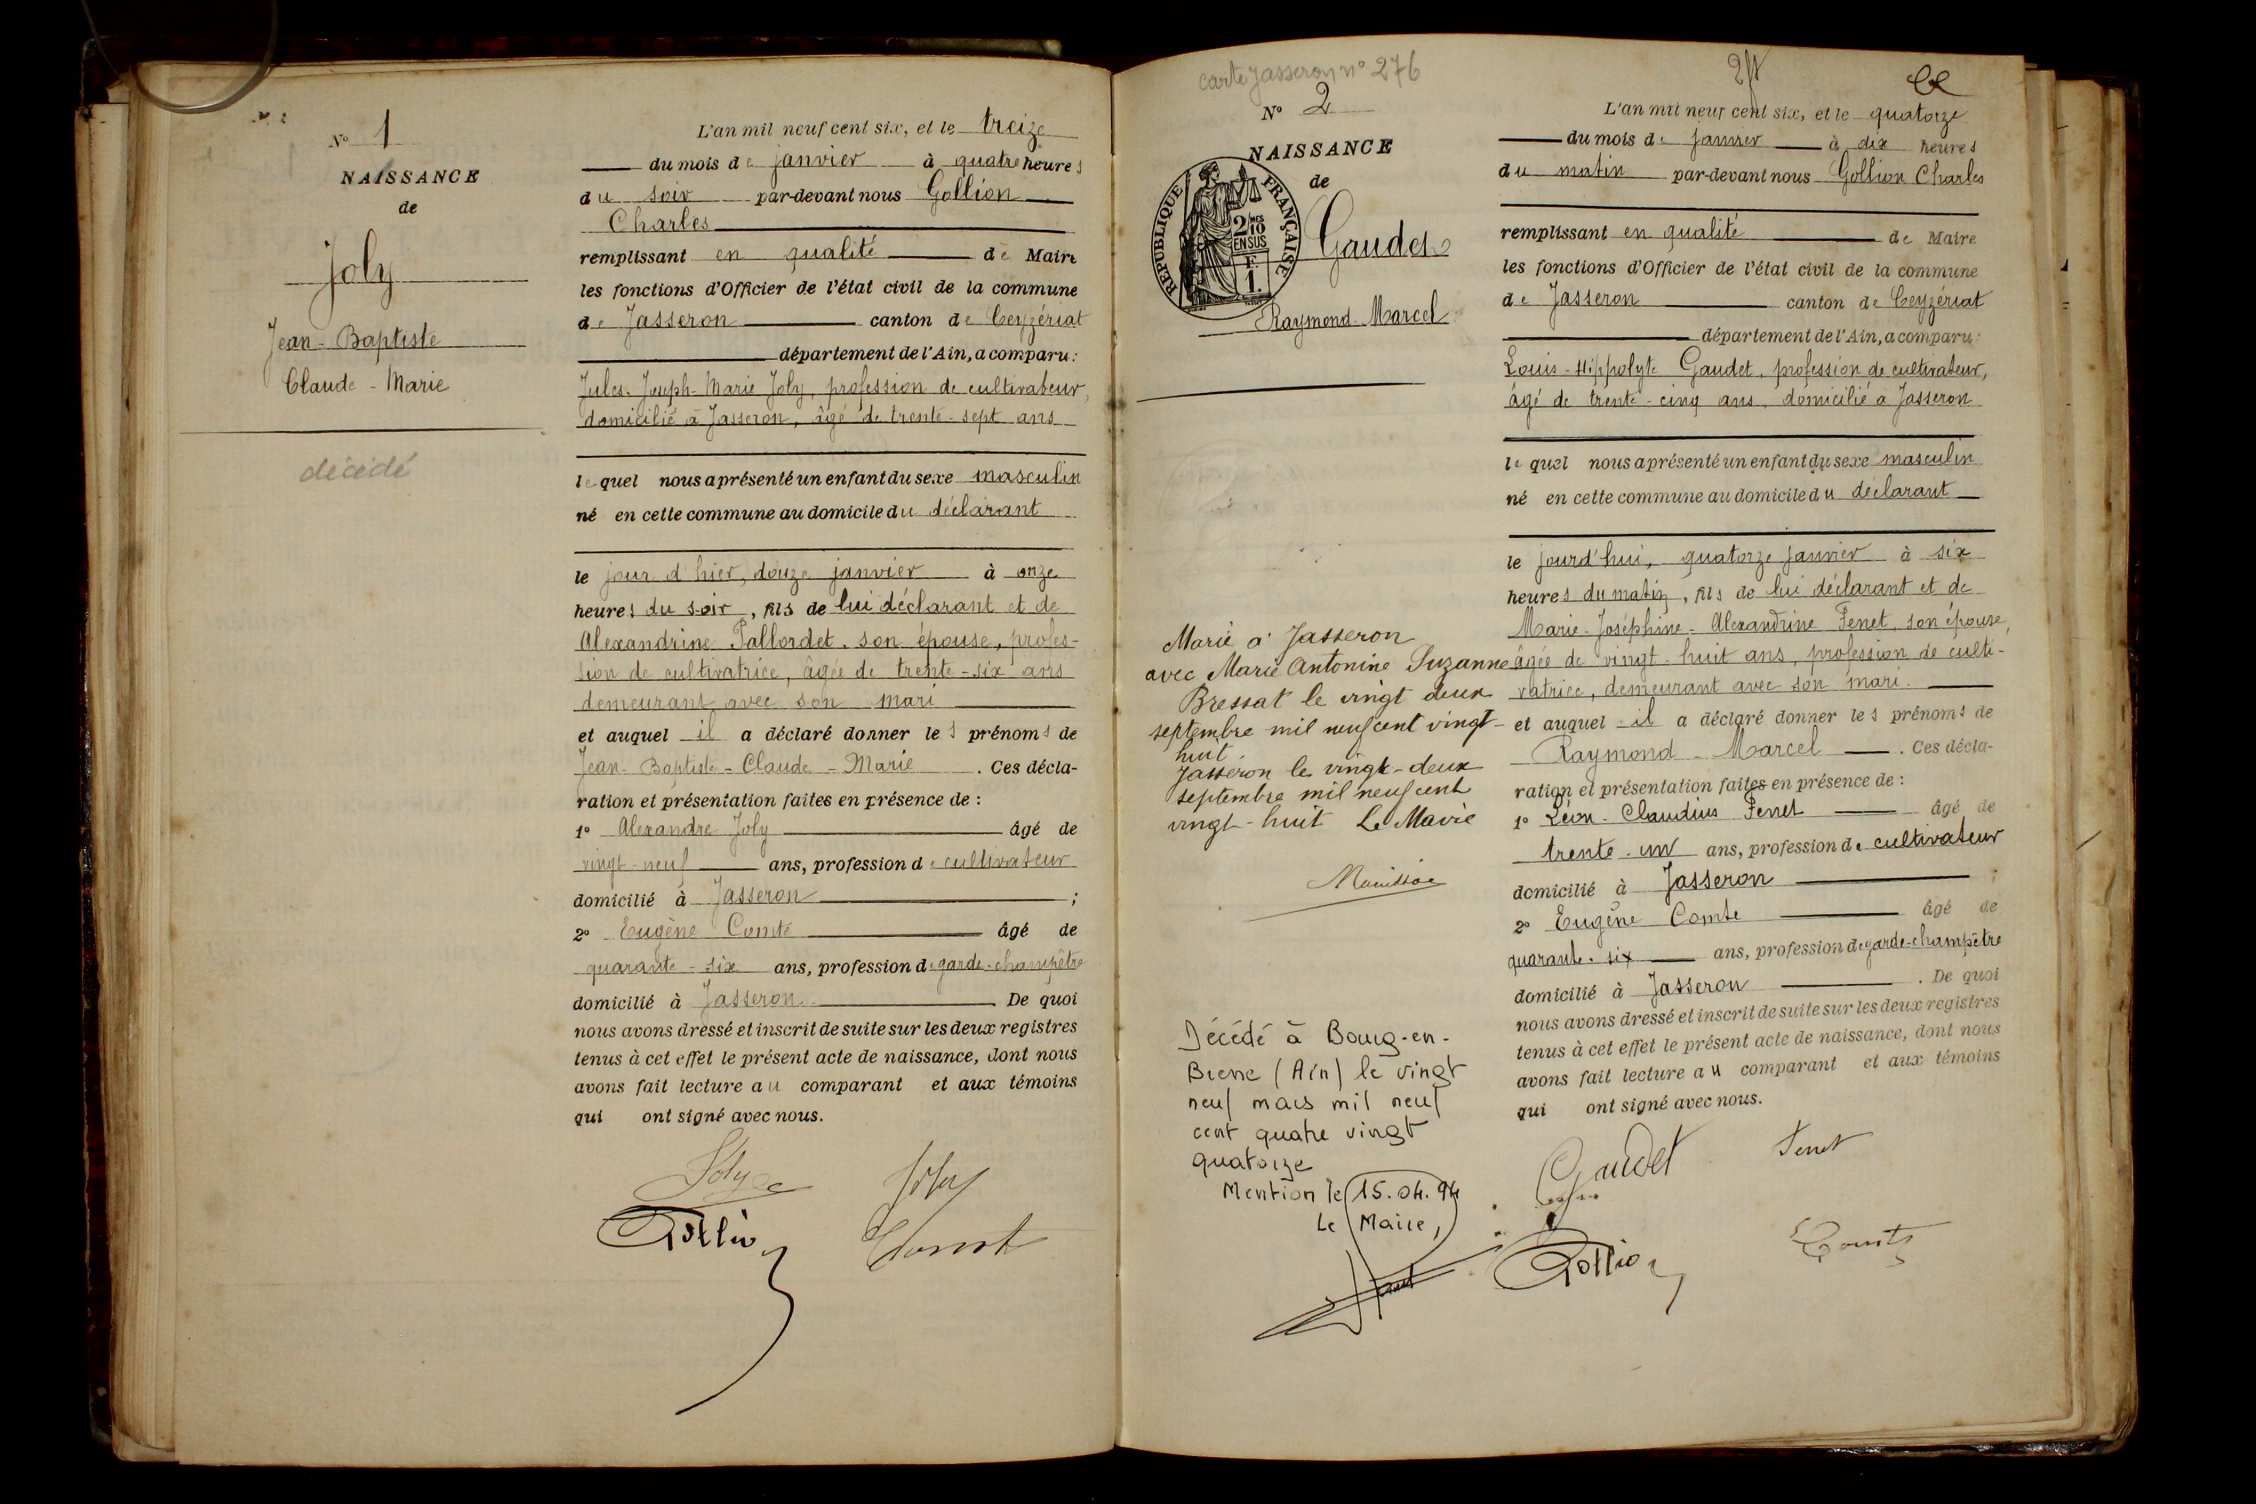 N° 1
NAISSANCE
de
Joly
Jean-Baptiste
Claude-Marie
décédé
L'an mil neuf cent six, et le treize
du mois de janvier à quatre heures
du soir par-devant nous Gollion
Charles
remplissant en qualité de Maire
les fonctions d'Officier de l'état civil de la commune
de Jasseron canton de Ceyzériat
département de l'Ain, a comparu:
Jules-Joseph-Marie Joly, profession de cultivateur,
domicilié à Jasseron, âgé de trente-sept ans
lequel nous a présenté un enfant du sexe masculin
né en cette commune au domicile du déclarant
le jour d'hier, douze janvier à onze
heures du soir, fils de lui déclarant et de
Alexandrine Pallordet, son épouse, profes-
sion de cultivatrice, âgée de trente-six ans
demeurant avec son mari
et auquel il a déclaré donner les prénoms de
Jean-Baptiste-Claude-Marie. Ces décla-
ration et présentation faites en présence de:
1° Alexandre Joly âgé de
vingt-neuf ans, profession de cultivateur
domicilié à Jasseron;
2° Eugène Comte âgé de
quarante-six ans, profession de garde-champêtre
domicilié à Jasseron. De quoi
nous avons dressé et inscrit de suite sur les deux registres
tenus à cet effet le présent acte de naissance, dont nous
avons fait lecture au comparant et aux témoins
qui ont signé avec nous.
Joly Joly
Gollion Comte
carte Jasseron n° 276
N° 2
NAISSANCE
de
RÉPUBLIQUE FRANÇAISE
2/10
EN SUS
F.
1.
Gaudet
Raymond-Marcel
Marié à Jasseron
avec Marie Antonine Suzanne
Bressat le vingt deux
septembre mil neuf cent vingt-
huit
Jasseron le vingt-deux
septembre mil neuf cent
vingt-huit Le Maire
Décédé à Bourg-en-
Bresse (Ain) le vingt
neuf mars mil neuf
cent quatre vingt
quatorze
Mention le 15.04.94
Le Maire,
L'an mil neuf cent six, et le quatorze
du mois de janvier à dix heures
du matin par-devant nous Gollion Charles
remplissant en qualité de Maire
les fonctions d'Officier de l'état civil de la commune
de Jasseron canton de Ceyzériat
département de l'Ain, a comparu:
Louis-Hippolyte Gaudet, profession de cultivateur,
âgé de trente-cinq ans, domicilié à Jasseron
lequel nous a présenté un enfant du sexe masculin
né en cette commune au domicile du déclarant
le jourd'hui, quatorze janvier à six
heures du matin, fils de lui déclarant et de
Marie-Joséphine-Alexandrine Fenet, son épouse,
âgée de vingt-huit ans, profession de culti-
vatrice, demeurant avec son mari.
et auquel il a déclaré donner les prénoms de
Raymond-Marcel. Ces décla-
ration et présentation faites en présence de:
1° Léon-Claudius Fenet âgé de
trente-un ans, profession de cultivateur
domicilié à Jasseron;
2° Eugène Comte âgé de
quarante-six ans, profession de garde-champêtre
domicilié à Jasseron. De quoi
nous avons dressé et inscrit de suite sur les deux registres
tenus à cet effet le présent acte de naissance, dont nous
avons fait lecture au comparant et aux témoins
qui ont signé avec nous.
Gaudet Fenet
Gollion Comte